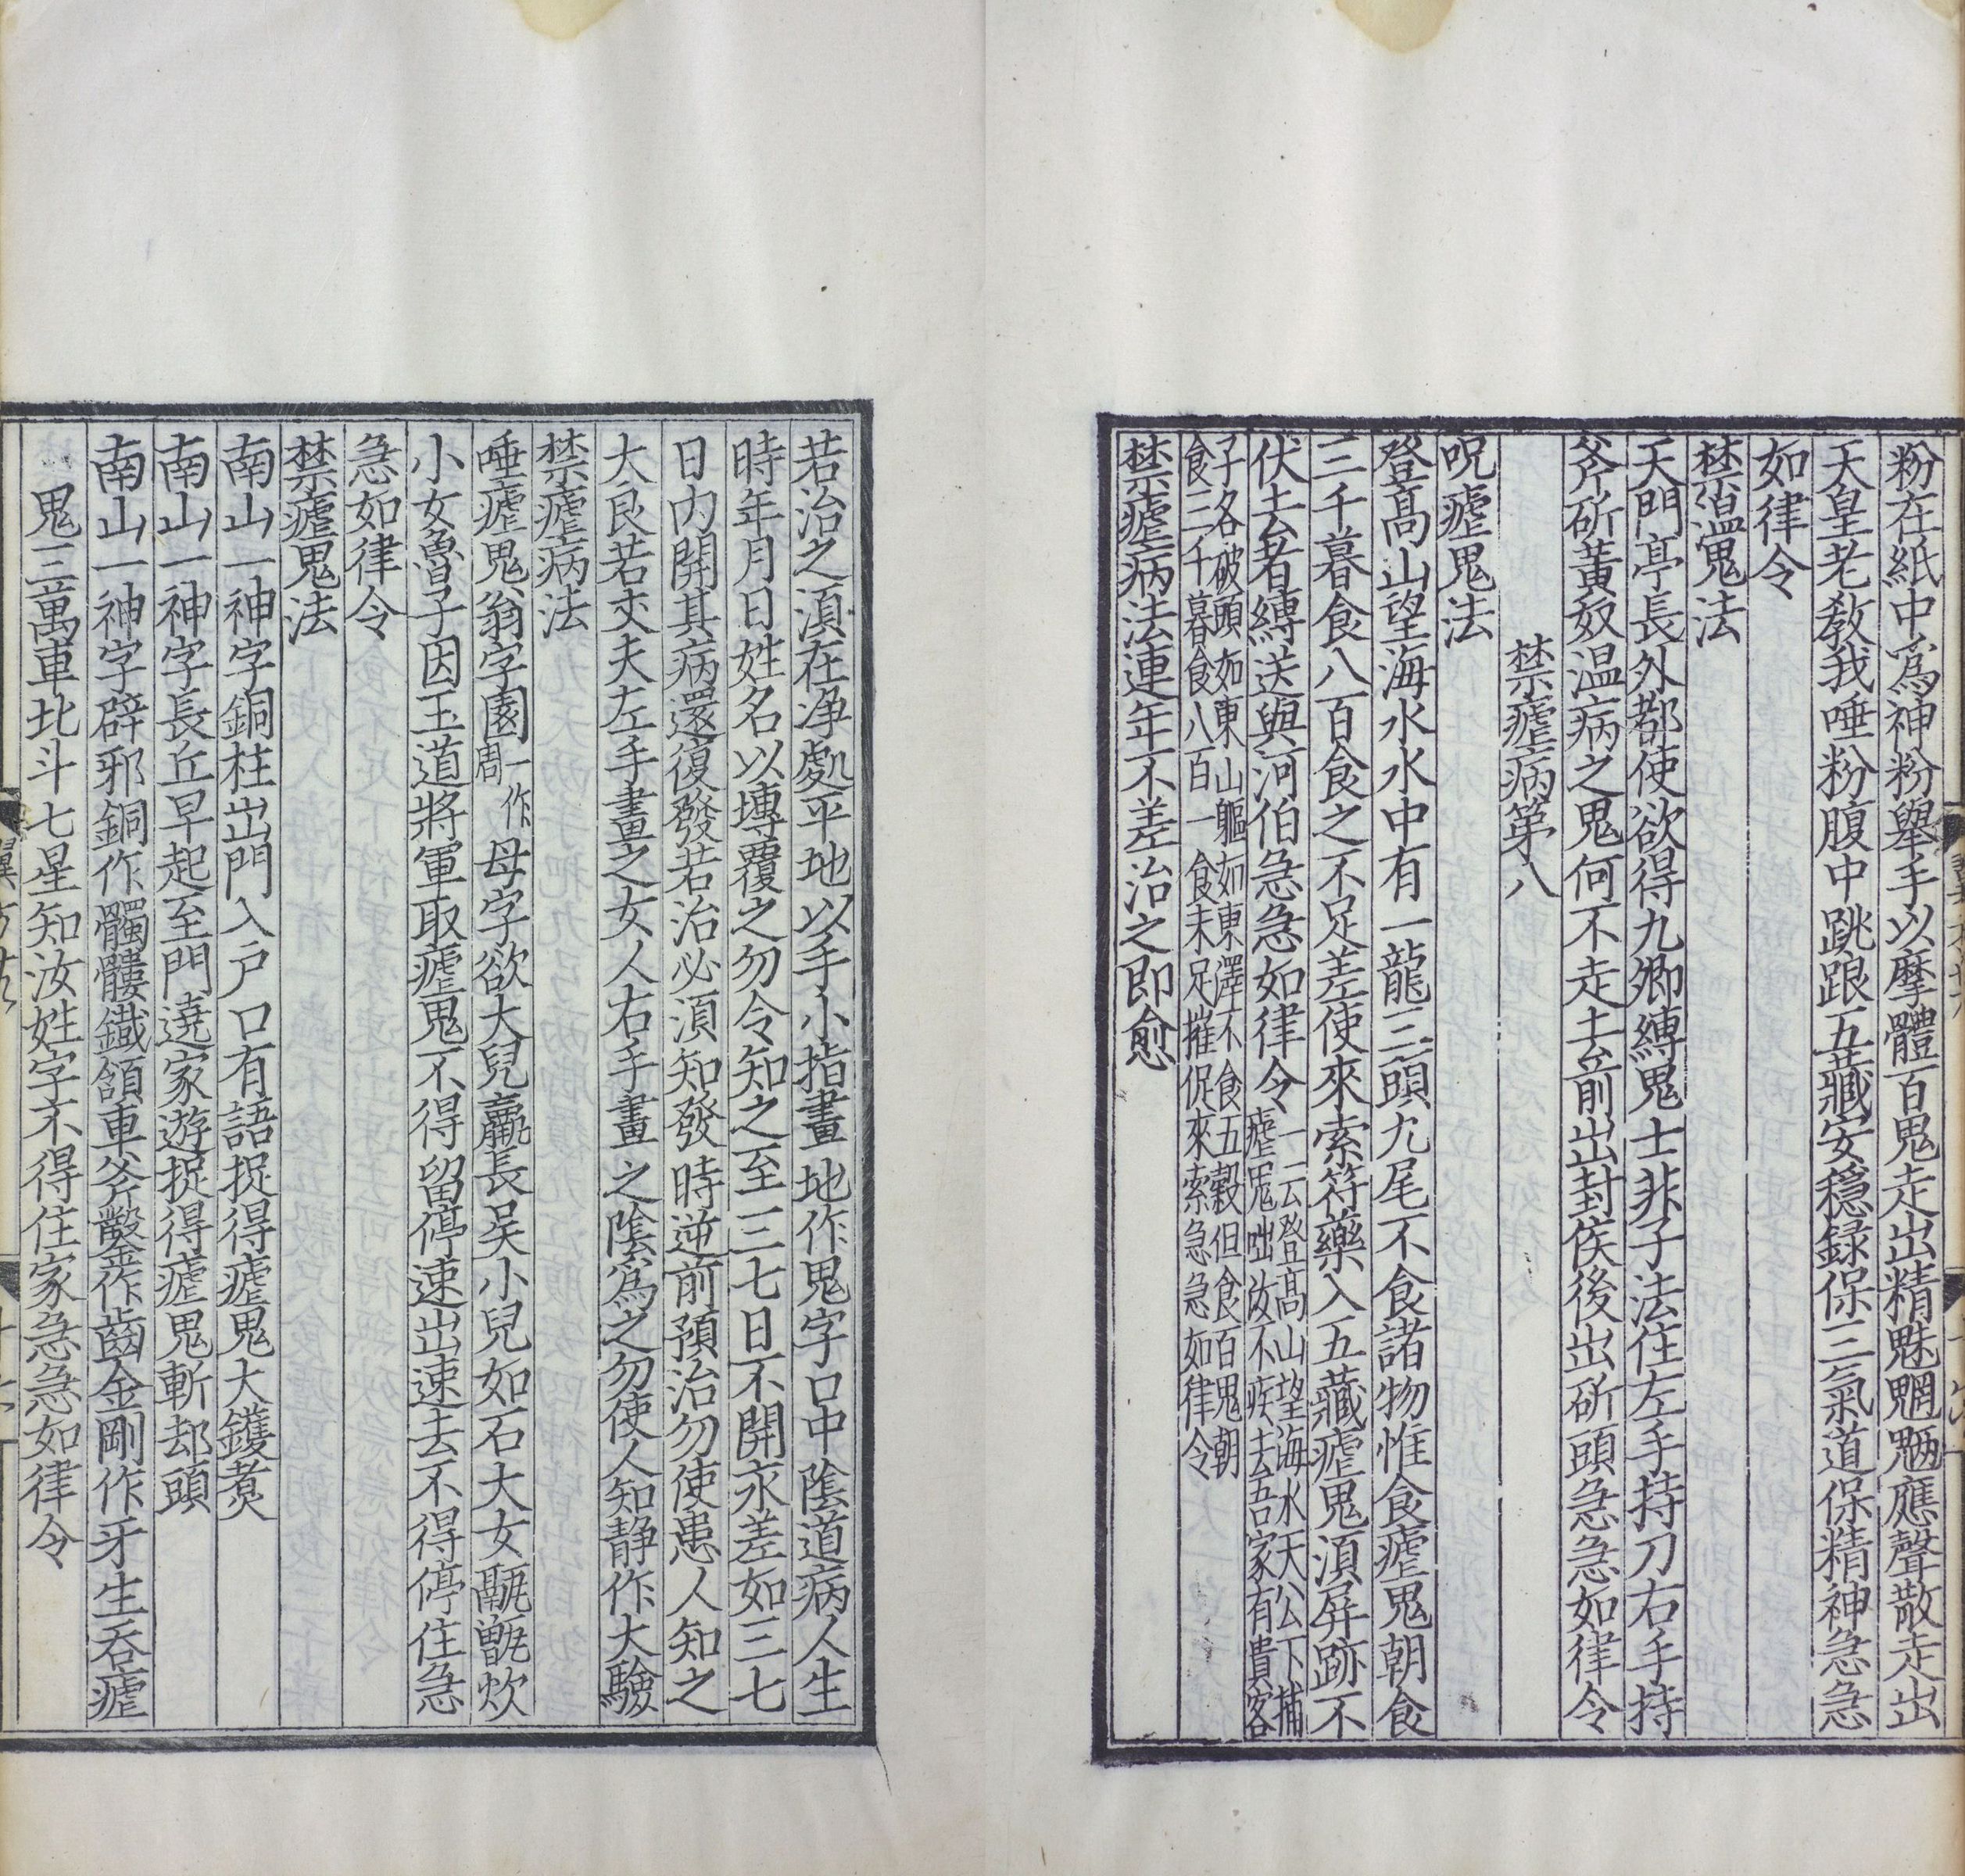 粉在紙中爲神粉舉手以摩體百鬼走出精魅魍魎應聲散走出
天皇老教我唾粉腹中跳踉五藏安穩録保三氣道保精神急急
如律令
禁溫鬼法
天門亭長外都使欲得九卿縛鬼士非子法住左手持刀右手持
斧斫黃奴温病之鬼何不走去前出封侯後出斫頭急急如律令
禁瘧病第八
呪瘧鬼法
登高山望海水水中有一龍三頭九尾不食諸物惟食瘧鬼朝食
三千暮食八百食之不足差使來索符藥入五藏瘧鬼須屏跡不
伏去者縛送與河伯急急如律令一云登高山望海水天公下捕
瘧鬼咄汝不疾去吾家有貴客
子各破頭如東山軀如東澤不食五穀但食百鬼朝
食三千暮食八百一食未足摧促來索急急如律令
禁瘧病法連年不差治之即愈
若治之須在净處平地以手小指畫地作鬼字口中陰道病人生
時年月日姓名以塼覆之勿令知之至三七日不開永差如三七
日内開其病還復發若治必須知發時逆前預治勿使患人知之
大良若丈夫左手畫之女人右手畫之陰爲之勿使人知静作大驗
禁瘧病法
唾瘧鬼翁字園一作
周母字欲大兒羸長矣小兒如石大女甂甑炊
小女魯子因玉道將軍取瘧鬼不得留停速出速去不得停住急
急如律令
禁瘧鬼法
南山一神字銅柱出門入户口有語捉得瘧鬼大鑊煑
南山一神字長丘早起至門遶家遊捉得瘧鬼斬却頭
南山一神字辟邪銅作髑髏鐵頷車斧鑿作齒金剛作牙生吞瘧
鬼三萬車北斗七星知汝姓字不得住家急急如律令